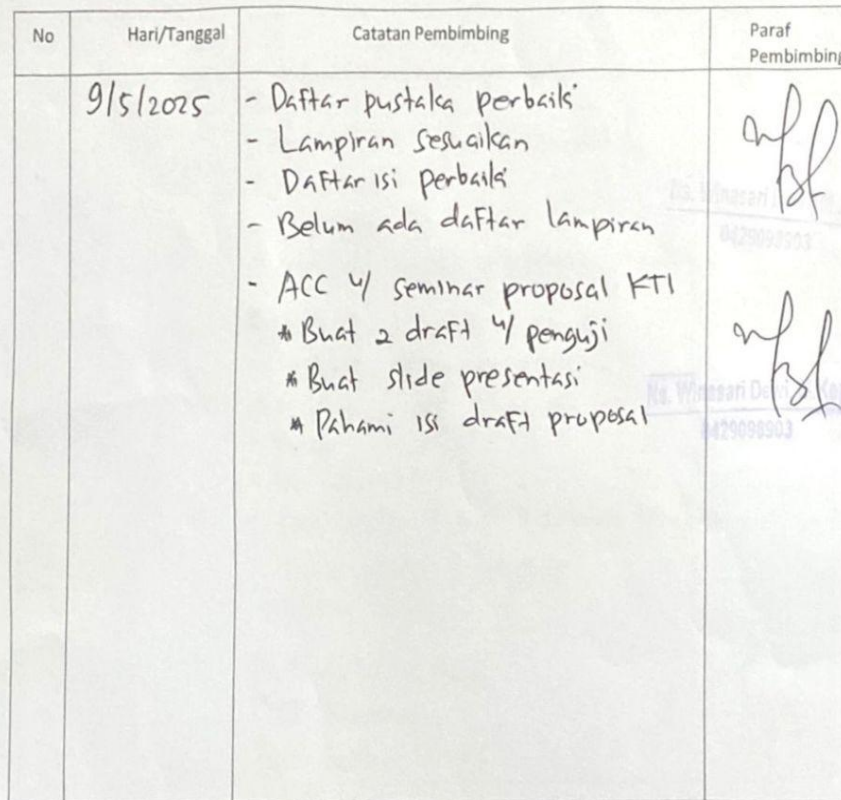 No Hari/Tanggal Catatan Pembimbing Paraf
Pembimbing
9/5/2025 - Daftar pustaka perbaiki
- Lampiran sesuaikan
- Daftar isi perbaiki
- Belum ada daftar lampiran
- ACC u/ seminar proposal KTI
* Buat 2 draft u/ penguji
* Buat slide presentasi
* Pahami isi draft proposal
Ns. Winasari
0429098903
Ns. Winasari Dewi
0429098903